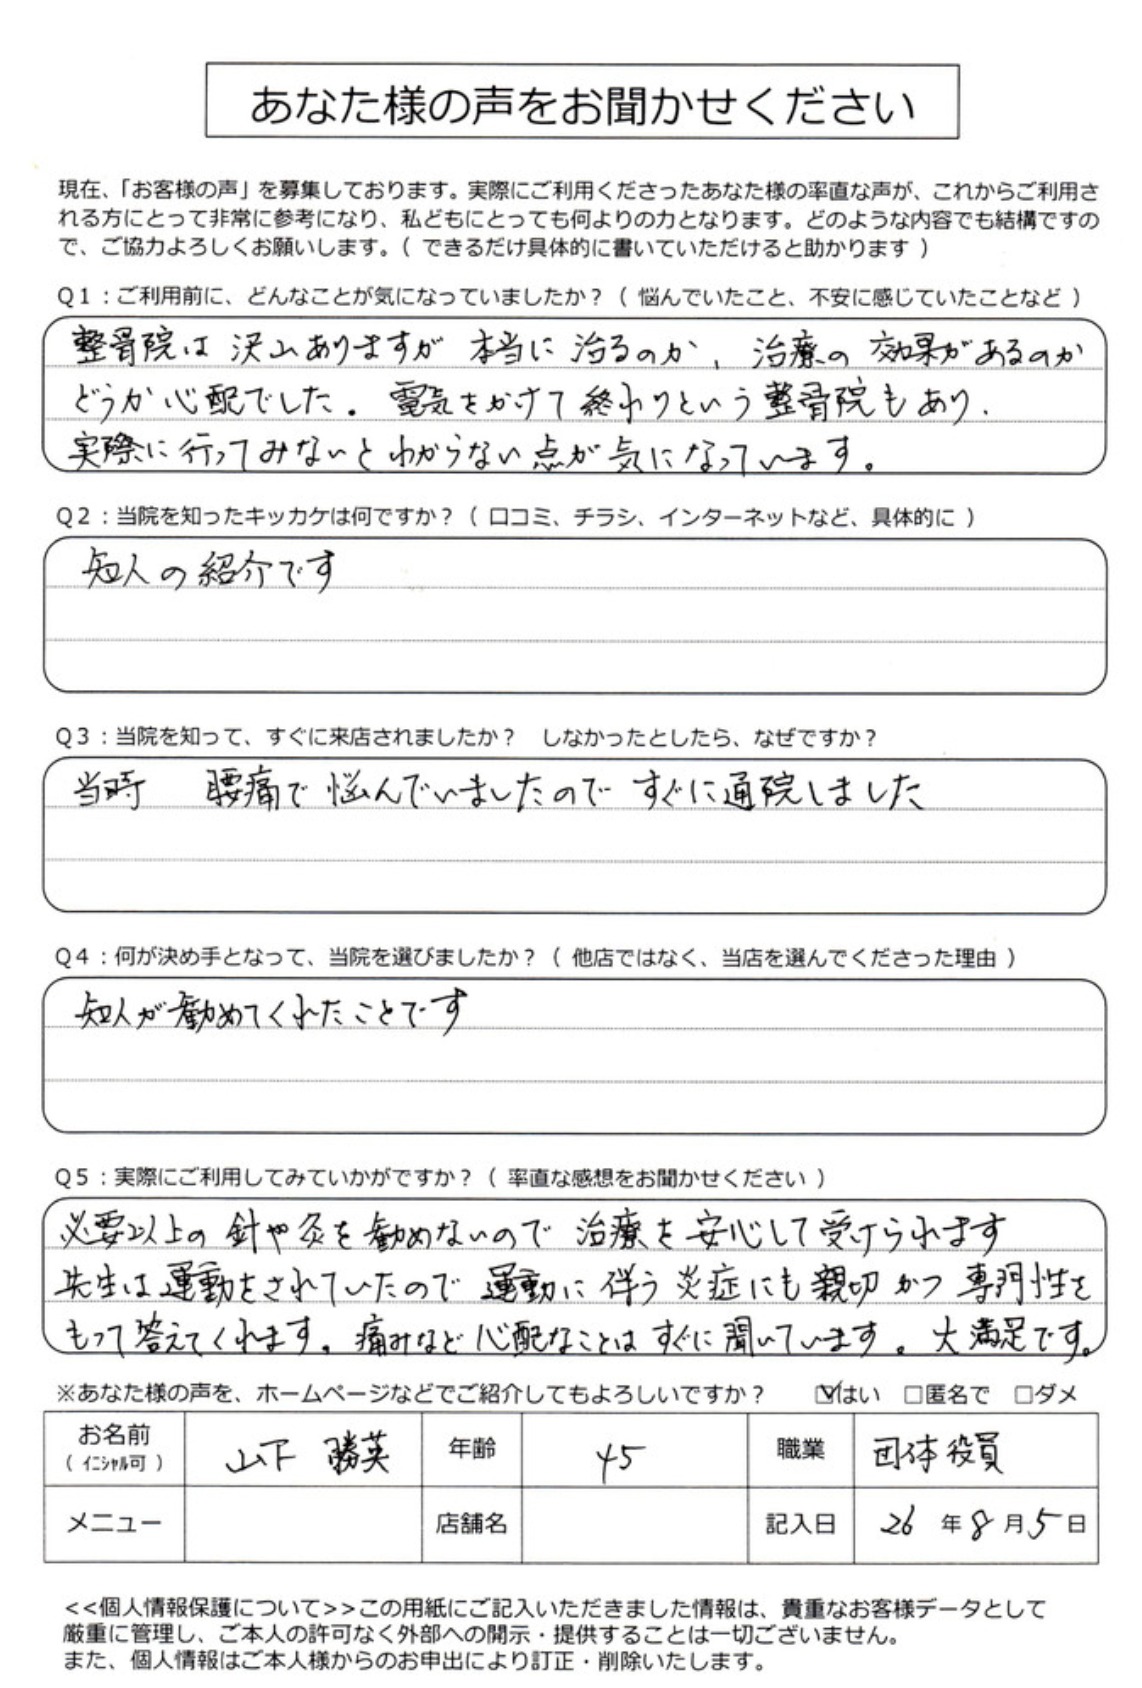 あなた様の声をお聞かせください
現在、「お客様の声」を募集しております。実際にご利用くださったあなた様の率直な声が、これからご利用さ
れる方にとって非常に参考になり、私どもにとっても何よりの力となります。どのような内容でも結構ですの
で、ご協力よろしくお願いします。( できるだけ具体的に書いていただけると助かります )
Q1：ご利用前に、どんなことが気になっていましたか？( 悩んでいたこと、不安に感じていたことなど )
整骨院は 沢山ありますが 本当に 治るのか、治療の 効果があるのか
どうか心配でした。電気をかけて終わりという整骨院もあり、
実際に行ってみないとわからない点が気になっています。
Q2：当院を知ったキッカケは何ですか？( 口コミ、チラシ、インターネットなど、具体的に )
知人の紹介です
Q3：当院を知って、すぐに来店されましたか？　しなかったとしたら、なぜですか？
当時　腰痛で 悩んでいましたので すぐに通院しました
Q4：何が決め手となって、当院を選びましたか？( 他店ではなく、当店を選んでくださった理由 )
知人が勧めてくれたことです
Q5：実際にご利用してみていかがですか？( 率直な感想をお聞かせください )
必要以上の 針や灸を勧めないので 治療を安心して受けられます
先生は運動をされていたので 運動に伴う炎症にも親切かつ専門性を
もって答えてくれます。痛みなど心配なことはすぐに聞いています。大満足です。
※あなた様の声を、ホームページなどでご紹介してもよろしいですか？　☑はい　□匿名で　□ダメ
お名前 山下 勝英 年齢 45 職業 団体役員
( ｲﾆｼｬﾙ可 )
メニュー 店舗名 記入日 26 年 8 月 5 日
<<個人情報保護について>>この用紙にご記入いただきました情報は、貴重なお客様データとして
厳重に管理し、ご本人の許可なく外部への開示・提供することは一切ございません。
また、個人情報はご本人様からのお申出により訂正・削除いたします。